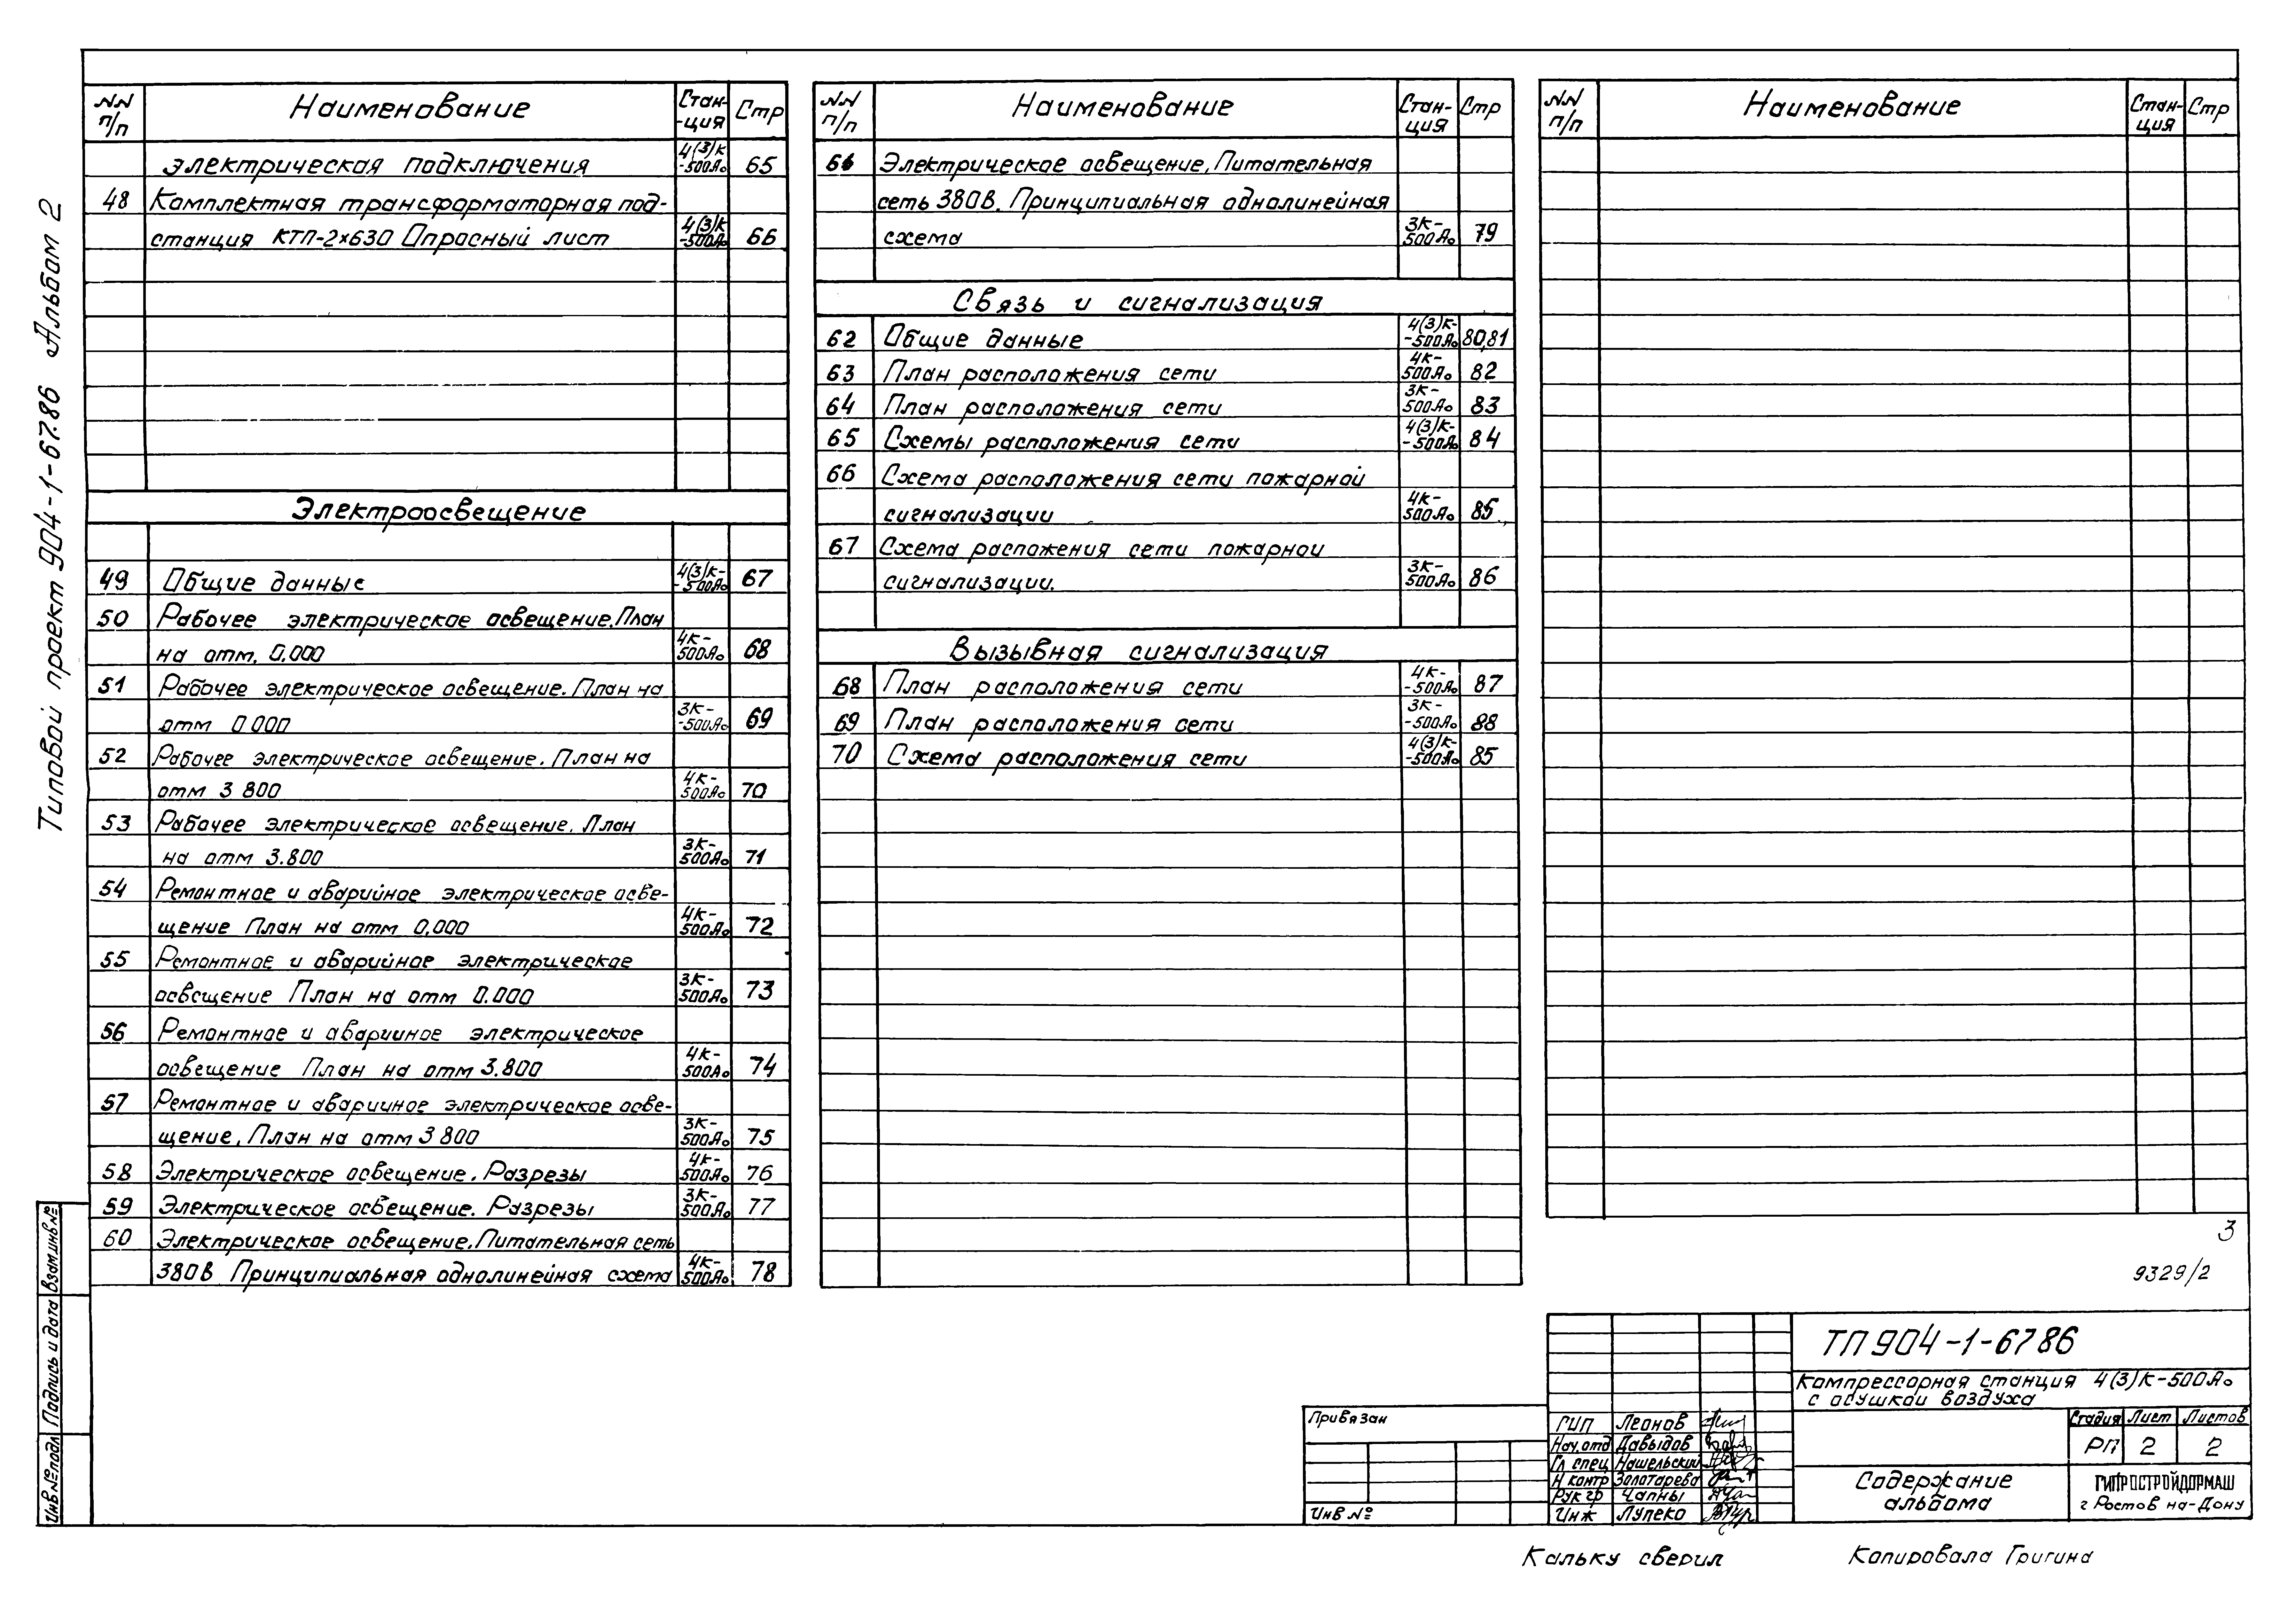 Типовой проект 904-1-67.86 Альбом 2
NN п/п Наименование Стан-ция Стр
электрическая подключения 4(3)К-500А₀ 65
48 Комплектная трансформаторная под-
станция КТП-2×630 Опросный лист 4(3)К-500А₀ 66
Электроосвещение
49 Общие данные 4(3)К-500А₀ 67
50 Рабочее электрическое освещение. План
на отм. 0.000 4К-500А₀ 68
51 Рабочее электрическое освещение. План на
отм 0.000 3К-500А₀ 69
52 Рабочее электрическое освещение. План на
отм 3 800 4К-500А₀ 70
53 Рабочее электрическое освещение. План
на отм 3.800 3К-500А₀ 71
54 Ремонтное и аварийное электрическое осве-
щение План на отм 0,000 4К-500А₀ 72
55 Ремонтное и аварийное электрическое
освещение План на отм 0.000 3К-500А₀ 73
56 Ремонтное и аварииное электрическое
освещение План на отм 3.800 4К-500А₀ 74
57 Ремонтное и аварииное электрическое осве-
щение, План на отм 3 800 3К-500А₀ 75
58 Электрическое освещение. Разрезы 4К-500А₀ 76
59 Электрическое освещение. Разрезы 3К-500А₀ 77
60 Электрическое освещение. Питательная сеть
380В Принципиальная однолинейная схема 4К-500А₀ 78
NN п/п Наименование Стан-ция Стр
61 Электрическое освещение. Питательная
сеть 380В. Принципиальная однолинейная
схема 3К-500А₀ 79
Связь и сигнализация
62 Общие данные 4(3)К-500А₀ 80,81
63 План расположения сети 4К-500А₀ 82
64 План расположения сети 3К-500А₀ 83
65 Схемы расположения сети 4(3)К-500А₀ 84
66 Схема расположения сети пожарной
сигнализации 4К-500А₀ 85
67 Схема распожения сети пожарнои
сигнализации. 3К-500А₀ 86
Вызывная сигнализация
68 План расположения сети 4К-500А₀ 87
69 План расположения сети 3К-500А₀ 88
70 Схема расположения сети 4(3)К-500А₀ 85
NN п/п Наименование Стан-ция Стр
3
9329/2
ТП 904-1-67 86
Компрессорная станция 4(3)К-500А₀
с осушкой воздуха
Стадия Лист Листов
РП 2 2
Содержание
альбома
ГИПРОСТРОЙДОРМАШ
г Ростов на-Дону
ГИП Леонов
Нач. отд Давыдов
Гл спец Нашельский
Н контр Золотарева
Рук гр Чапны
Инж Лупеко
Привязан
Инв №
Инв № подл Подпись и дата Взам. инв. №
Кальку сверил
Копировала Григина